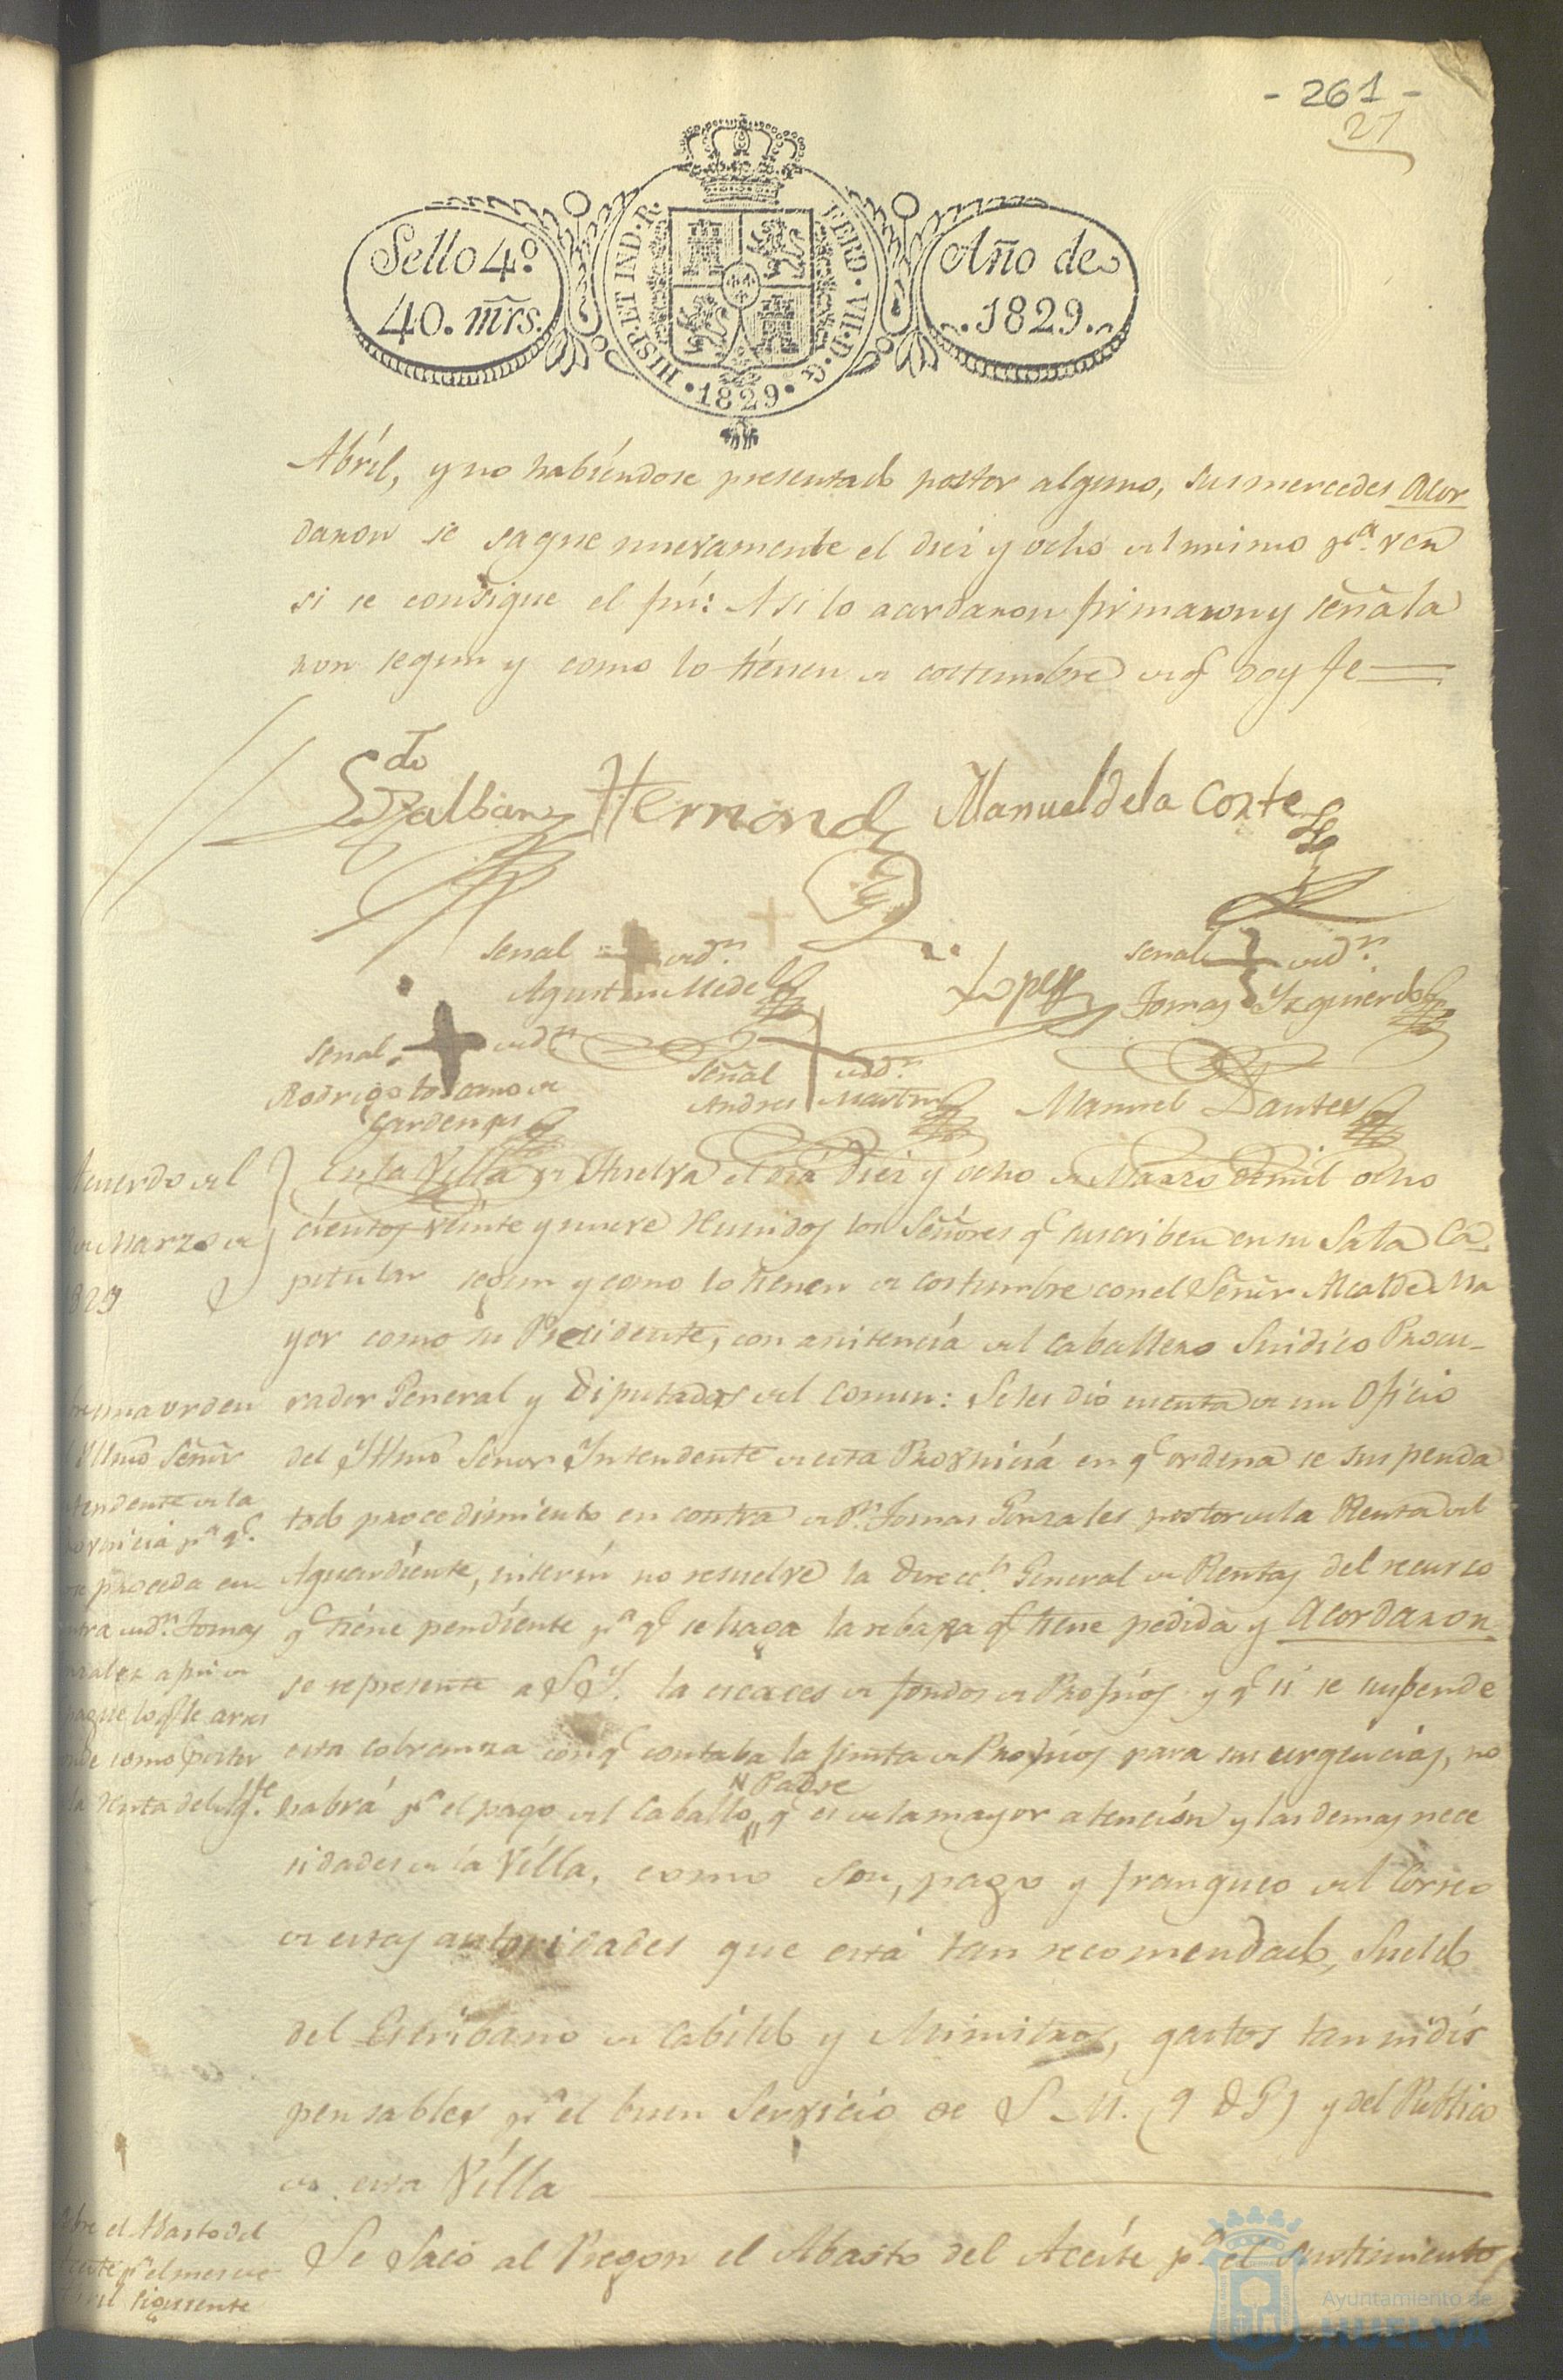 - 261 -
21
Sello 4º
40. mrs.
HISP. ET IND. R.
FERD. VII. D. G.
• 1829 •
Año de
1829.
Abril, y no habiendose presentado postor alguno, sus mercedes Acor
daron se saque nuevamente el diez y ocho del mismo pª. ver
si se consigue el fin: Asi lo acordaron firmaron y señala
ron segun y como lo tienen de costumbre de q doy fe
Galban Hernand Manuel de la Corte
señal de Dn.
Agustin Medel
Lopez
señal de Dn.
Tomas Yzquierdo
señal de Dn
Rodrigo to ano de
Cardenas
señal de Dn.
Andres Martin
Manuel Dantes
Acuerdo del
de Marzo de
829
En la Villa de Huelva el dia diez y ocho de Marzo de mil ocho
cientos veinte y nueve Reunidos los Señores q suscriben en su Sala Ca
pitular segun y como lo tienen de costumbre con el Señor Alcalde Ma
yor como su Presidente, con asistencia del Caballero Sindico Procu-
rador General y Diputados del comun: Se les dió cuenta de un Oficio
del Yllmo Señor Yntendente de esta Provincia en q ordena se suspenda
todo procedimiento en contra de Dn. Tomas Gonzales postor de la Renta del
Aguardiente, interin no resuelve la Direccn. General de Rentas del recurso
q tiene pendiente pª q se haga la rebaxa q tiene pedida y Acordaron
se represente a S.Y. la escaces de fondos de Propios y q si se suspende
esta cobranza con q contaba la junta de Propios para sus urgencias, no
habrá pª el pago del Caballo Padre q es de la mayor atención y las demas nece
sidades de la Villa, como son, pago y franqueo del Correo
de estas autoridades que está tan recomendado, Sueldo
del Escribano de Cabildo y Ministros, gastos tan indis
pensables pª el buen Servicio de S. M. (q D G) y del Publico
de esta Villa
una orden
Yllmo Señor
tendente de la
ovincia pª q.
proceda en
ntra de Dn. Tomas
nzalez a fin de
pague lo q le arren
de como postor
la renta del Agte.
bre el Abasto del
ceite pª el mes de
bril siguiente
Se Sacó al Pregon el Abasto del Aceite pª el surtimiento
Ayuntamiento de
HUELVA